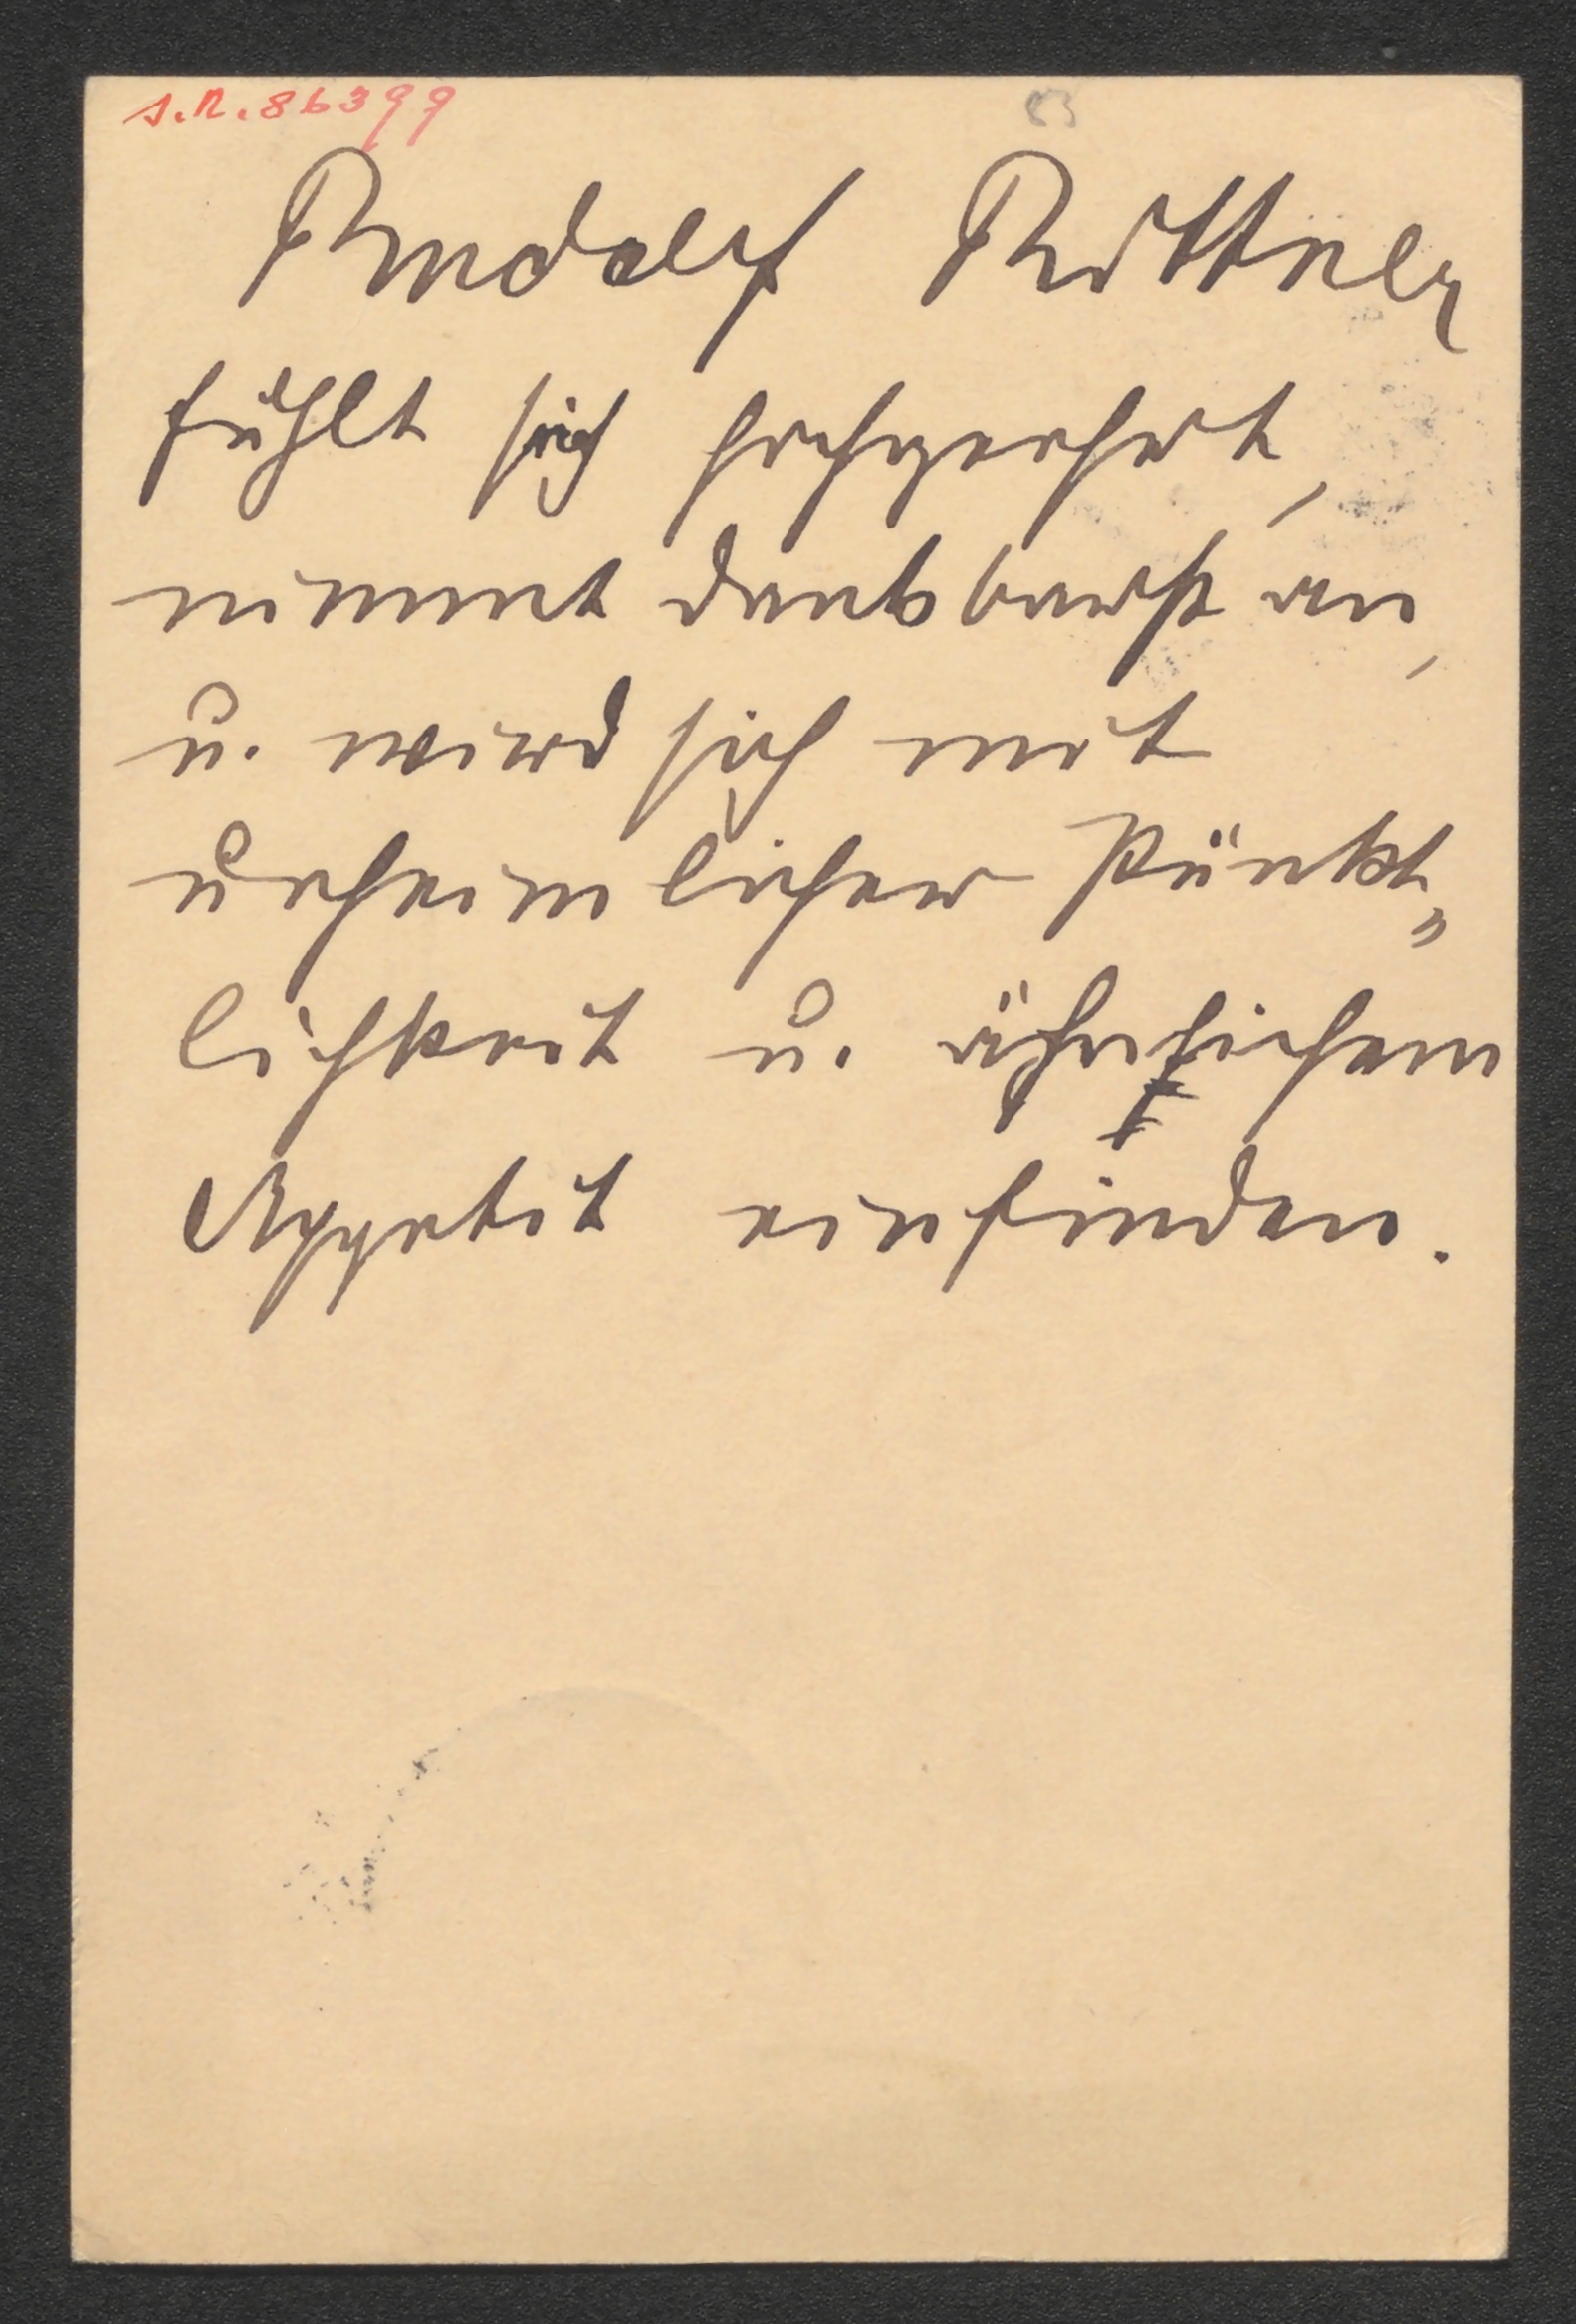 J.N. 86399
Rudolf Rittner
fühlt sich hochgeehrt,
nimmt dankbarst an,
u. wird sich mit
unheimlicher Pünkt=
lichkeit u. ähnlichem
Appetit einfinden.